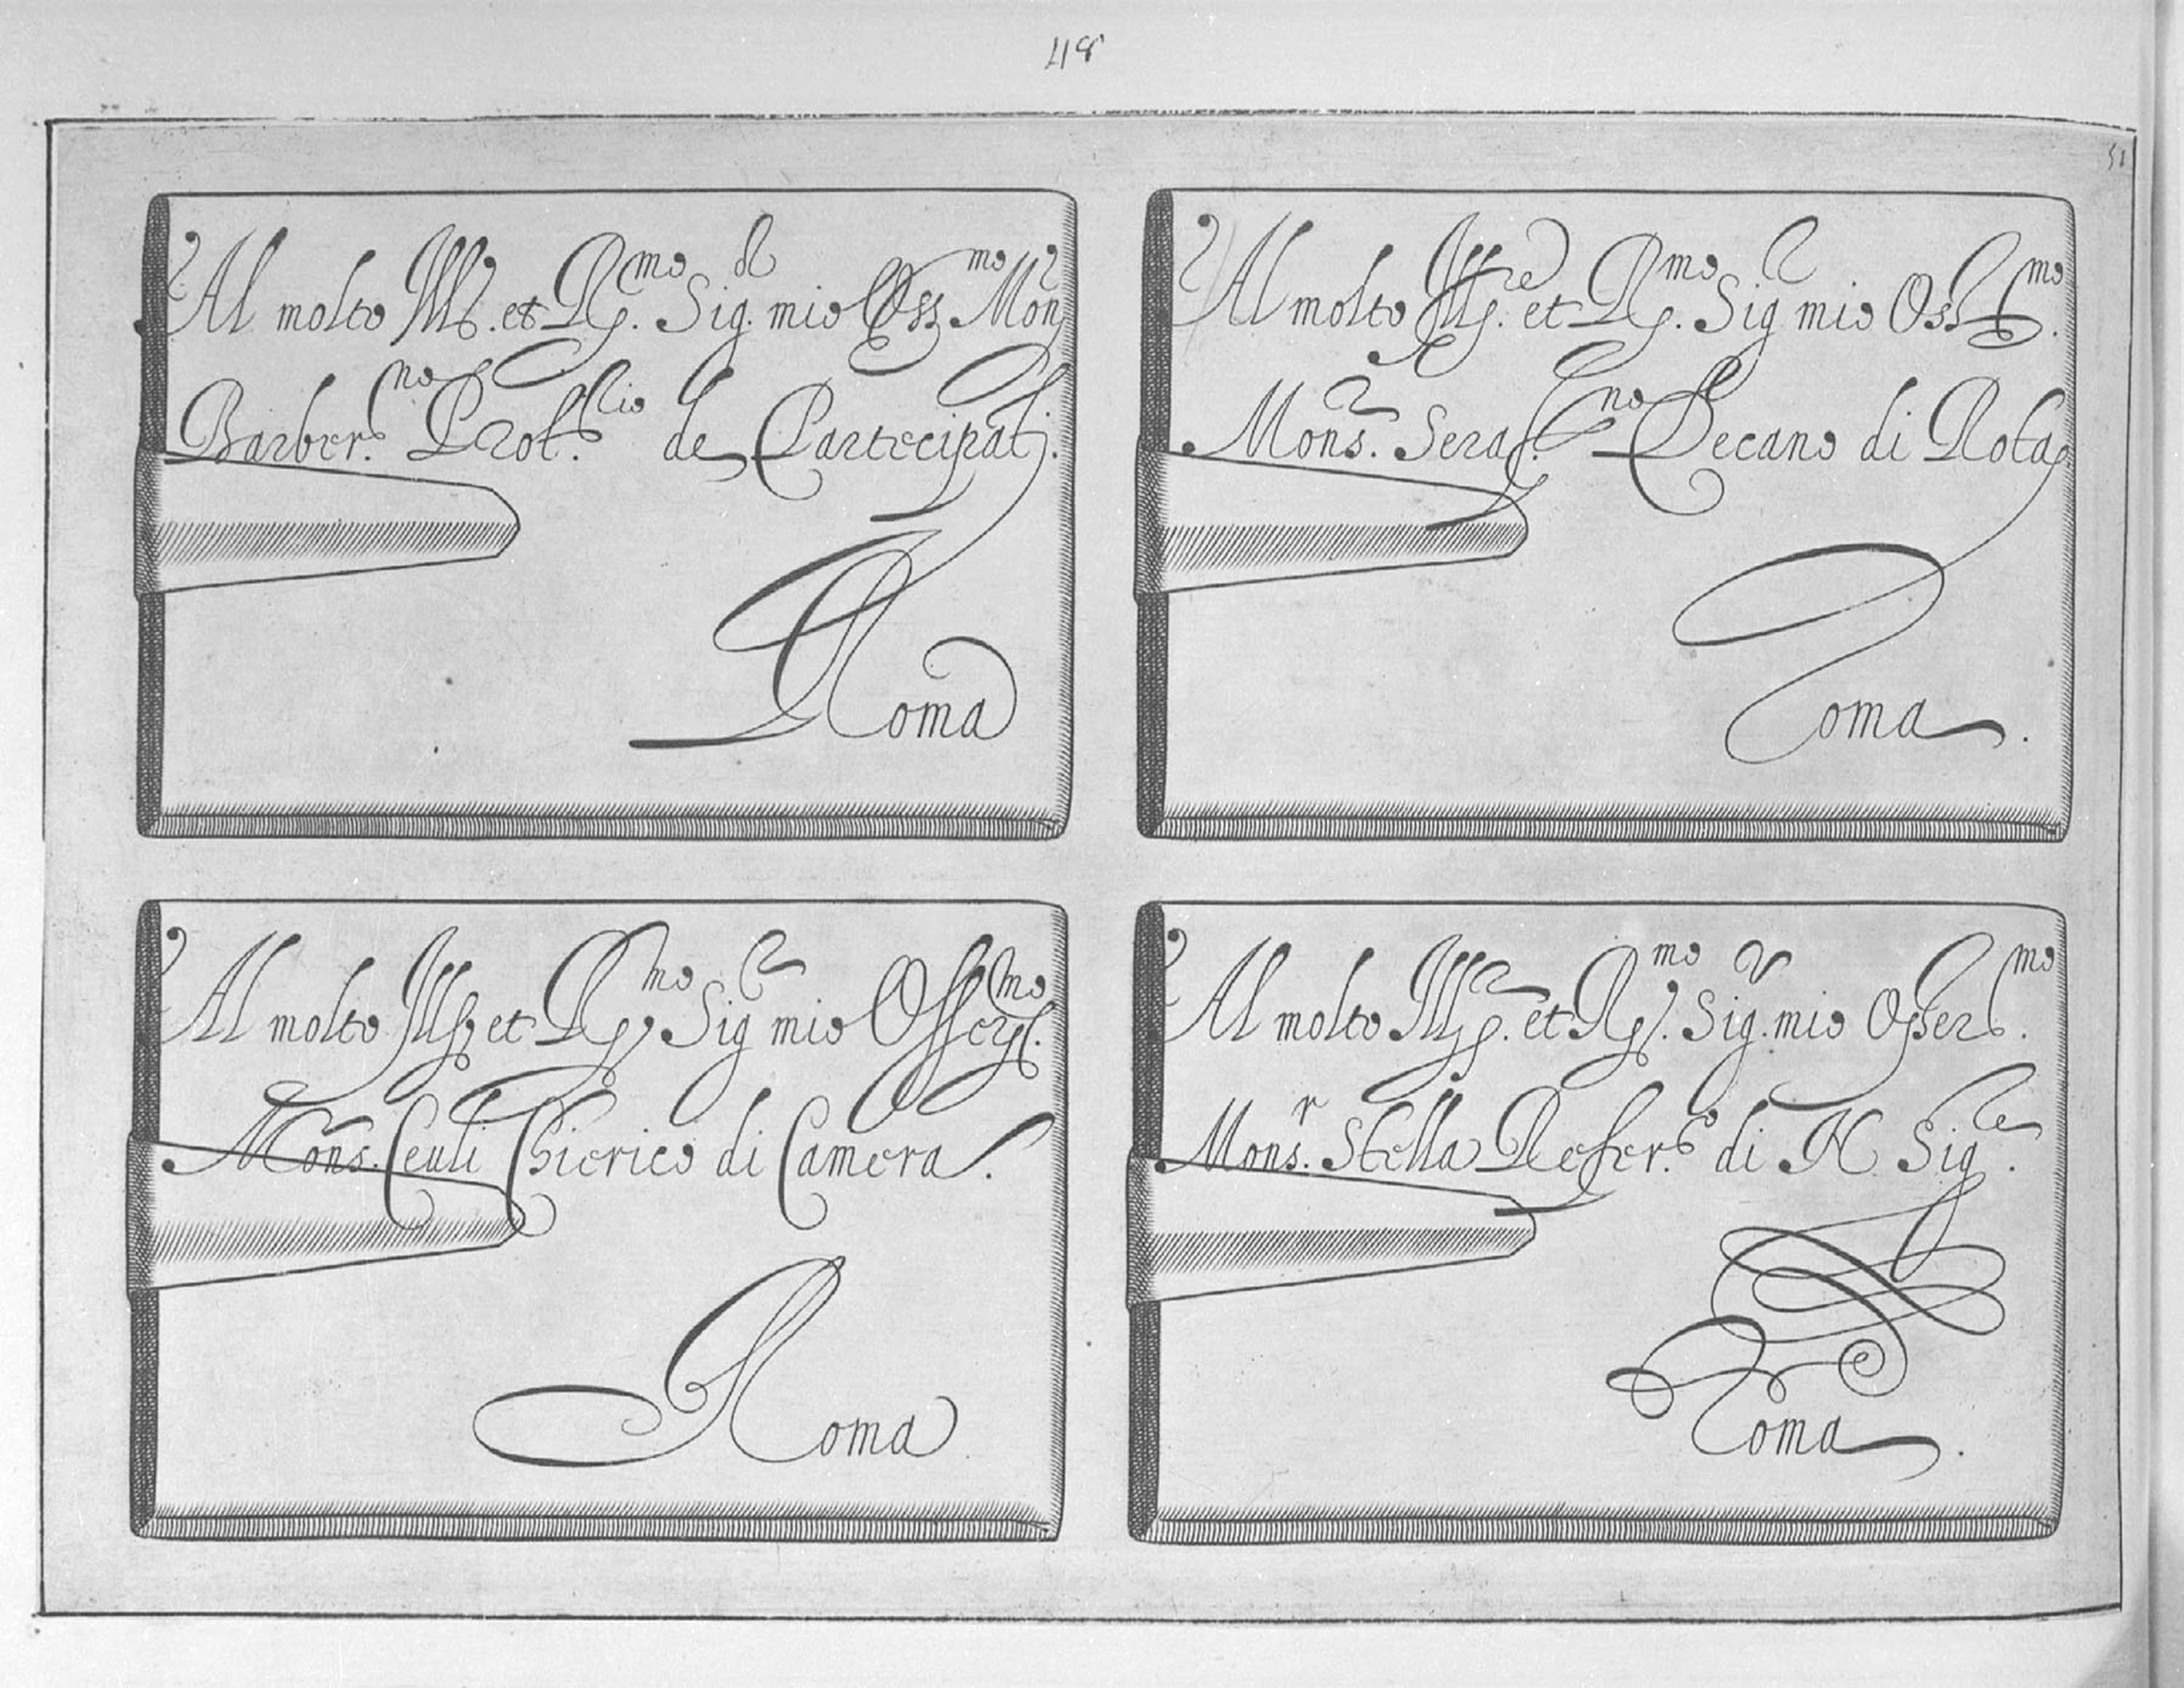 48
51
Al molto Ill.re et R.mo Sig.r mio Oss.mo Mon.r
Barber.no Prot.rio de Partecipati.
Roma
Al molto Ill.re et R.mo Sig.r mio Oss.mo
Mons.r Seraf.no Decano di Rota
Roma.
Al molto Ill. et R.mo Sig.r mio Osser.mo
Mons. Ceuli Chierico di Camera.
Roma
Al molto Ill.re et R.mo Sig.r mio Osser.mo
Mons.r Stella Refer.o di N. Sig.re
Roma.